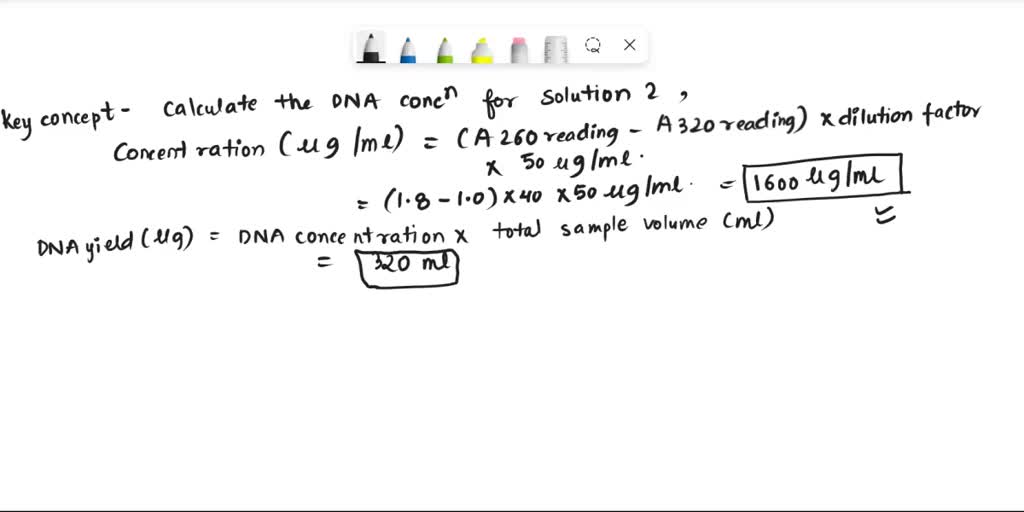 Key concept - Calculate the DNA concⁿ for solution 2,
Concentration (μg/ml) = (A260 reading - A320 reading) x dilution factor
x 50 μg/ml.
= (1.8 - 1.0) x 40 x 50 μg/ml. = 1600 μg/ml
DNA yield (μg) = DNA concentration x total sample volume (ml)
= 320 ml